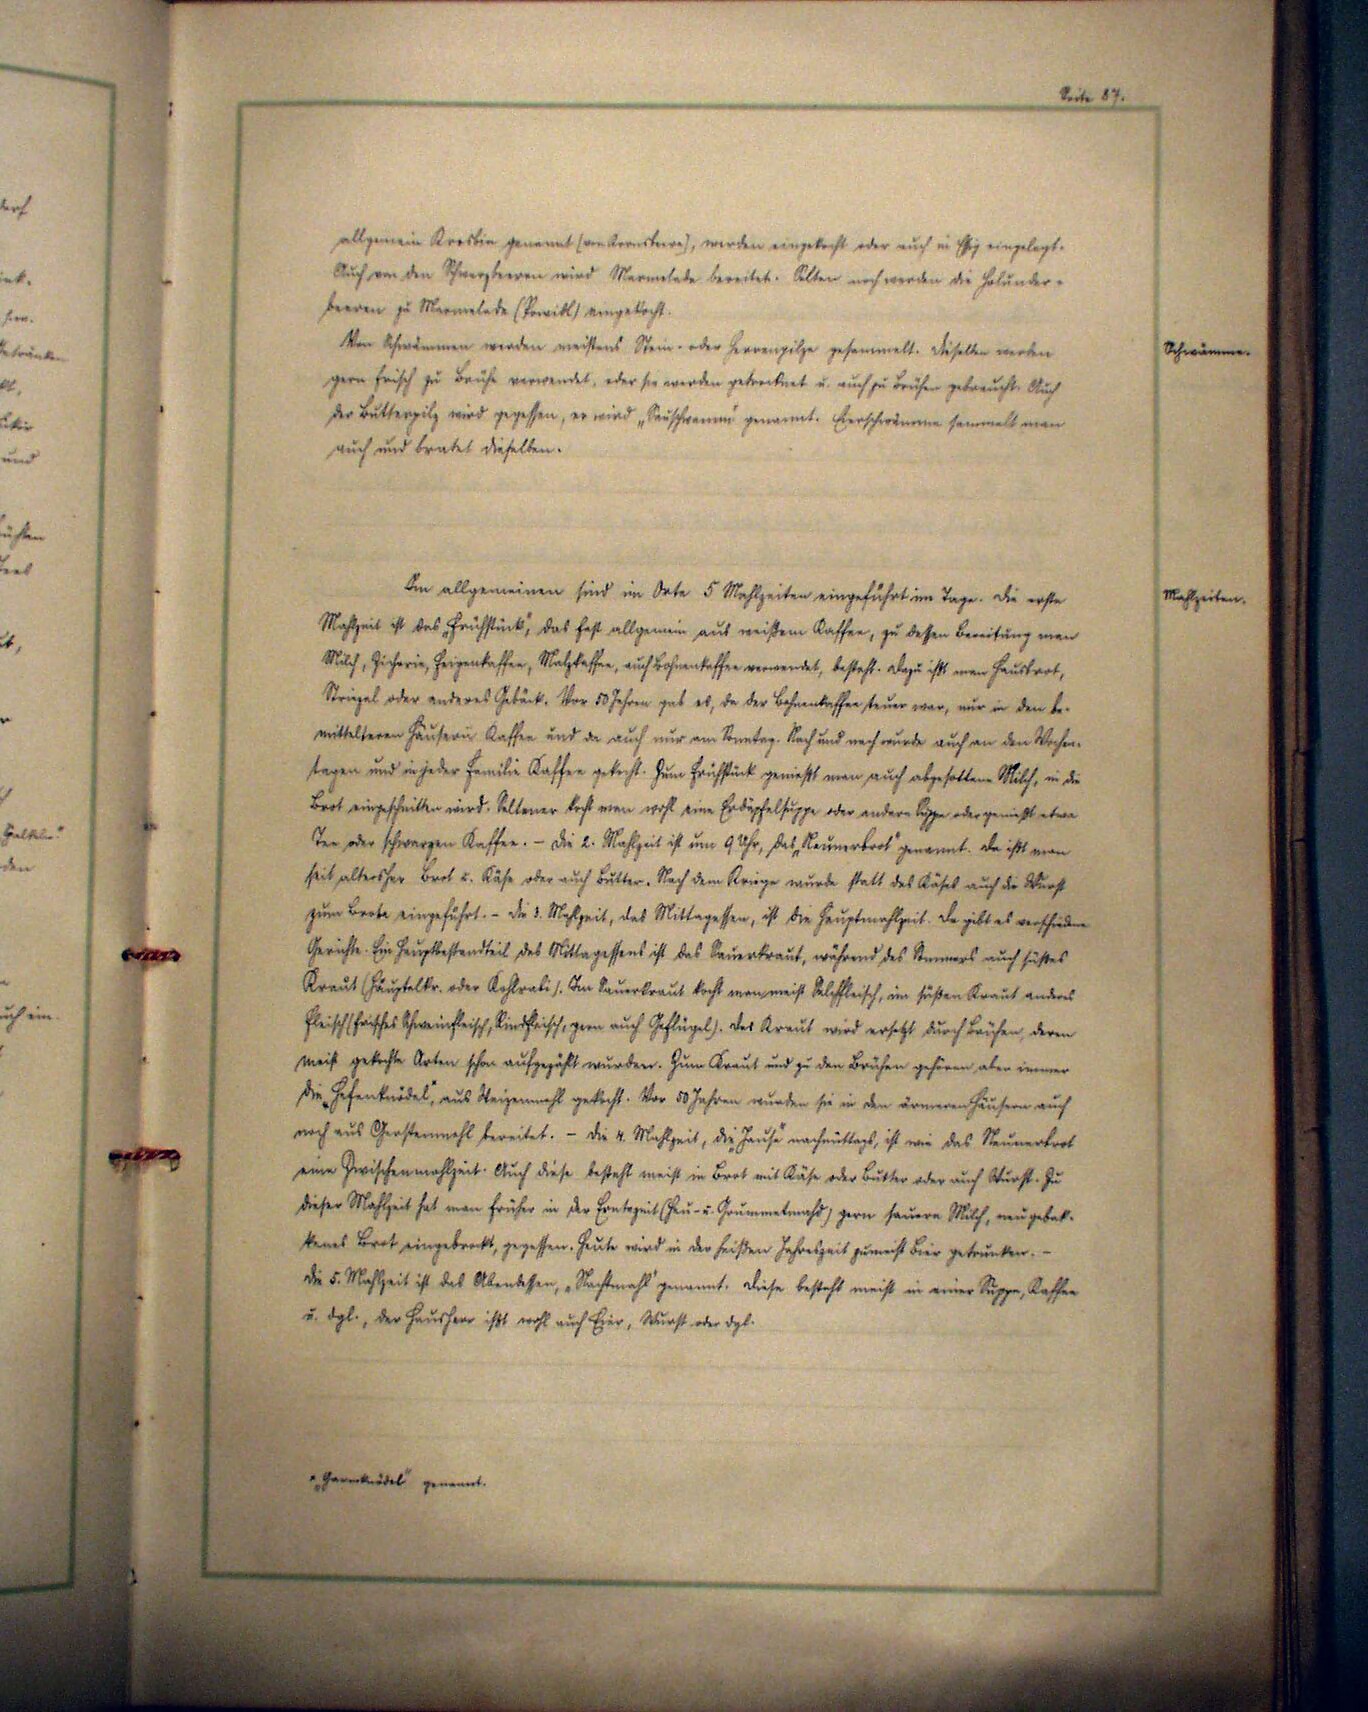 Seite 87.
allgemein Krosbir genannt (von Kronsbeere), werden eingekocht oder auch in Essig eingelegt.
Auch von den Schwarzbeeren wird Marmelade bereitet. Selten noch werden die Holunder-
beeren zu Marmelade (Powidl) eingekocht.
Von Schwämmen werden meistens Stein- oder Herrenpilze gesammelt. Dieselben werden
gern frisch zu Brühe verwendet, oder sie werden getrocknet u. auch zu Brühen gebraucht. Auch
der Butterpilz wird gegessen, er wird „Sauschwamm" genannt. Eierschwämme sammelt man
auch und bratet dieselben.
Schwämme.
Im allgemeinen sind im Orte 5 Mahlzeiten eingeführt im Tage. Die erste
Mahlzeit ist das „Frühstück", das fast allgemein aus weißem Kaffee, zu dessen Bereitung man
Milch, Zichorie, Feigenkaffee, Malzkaffee, auch Bohnenkaffee verwendet, besteht. Dazu ißt man Hausbrot,
Striezel oder anderes Gebäck. Vor 50 Jahren gab es, da der Bohnenkaffee teuer war, nur in den be-
mittelteren Häusern Kaffee und da auch nur am Sonntag. Nach und nach wurde auch an den Wochen-
tagen und in jeder Familie Kaffee gekocht. Zum Frühstück genießt man auch abgesottene Milch, in die
Brot eingeschnitten wird. Seltener kocht man wohl eine Erdäpfelsuppe oder andere Suppe oder genießt etwa
Tee oder schwarzen Kaffee. – Die 2. Mahlzeit ist um 9 Uhr, das „Neunerbrot" genannt. Da ißt man
seit altersher Brot u. Käse oder auch Butter. Nach dem Kriege wurde statt des Käses auch die Wurst
zum Brote eingeführt. – Die 3. Mahlzeit, das Mittagessen, ist die Hauptmahlzeit. Da gibt es verschiedene
Gerichte. Ein Hauptbestandteil des Mittagessens ist das Sauerkraut, während des Sommers auch süßes
Kraut (Häuptelkr. oder Kohlrabi). Im Sauerkraut kocht man meist Selchfleisch, im süßen Kraut anderes
Fleisch (frisches Schweinfleisch, Rindfleisch, gern auch Geflügel). Das Kraut wird ersetzt durch Brühen, deren
meist gekochte Arten schon aufgezählt wurden. Zum Kraut und zu den Brühen gehören aber immer
die „Hefenknödel"* aus Weizenmehl gekocht. Vor 50 Jahren wurden sie in den ärmeren Häusern auch
noch aus Gerstenmehl bereitet. – Die 4. Mahlzeit, die „Jause" nachmittags, ist wie das Neunerbrot
eine Zwischenmahlzeit. Auch diese besteht meist in Brot mit Käse oder Butter oder auch Wurst. Zu
dieser Mahlzeit hat man früher in der Erntezeit (Heu- u. Grummetmahd) gern sauere Milch, neugebak-
kenes Brot eingebrockt, gegessen. Heute wird in der heißen Jahreszeit zumeist Bier getrunken. –
Die 5. Mahlzeit ist das Abendessen, „Nachtmahl" genannt. Diese besteht meist in einer Suppe, Kaffee
u. dgl., der Hausherr ißt wohl auch Eier, Wurst oder dgl.
Mahlzeiten.
* „Garmknödel" genannt.